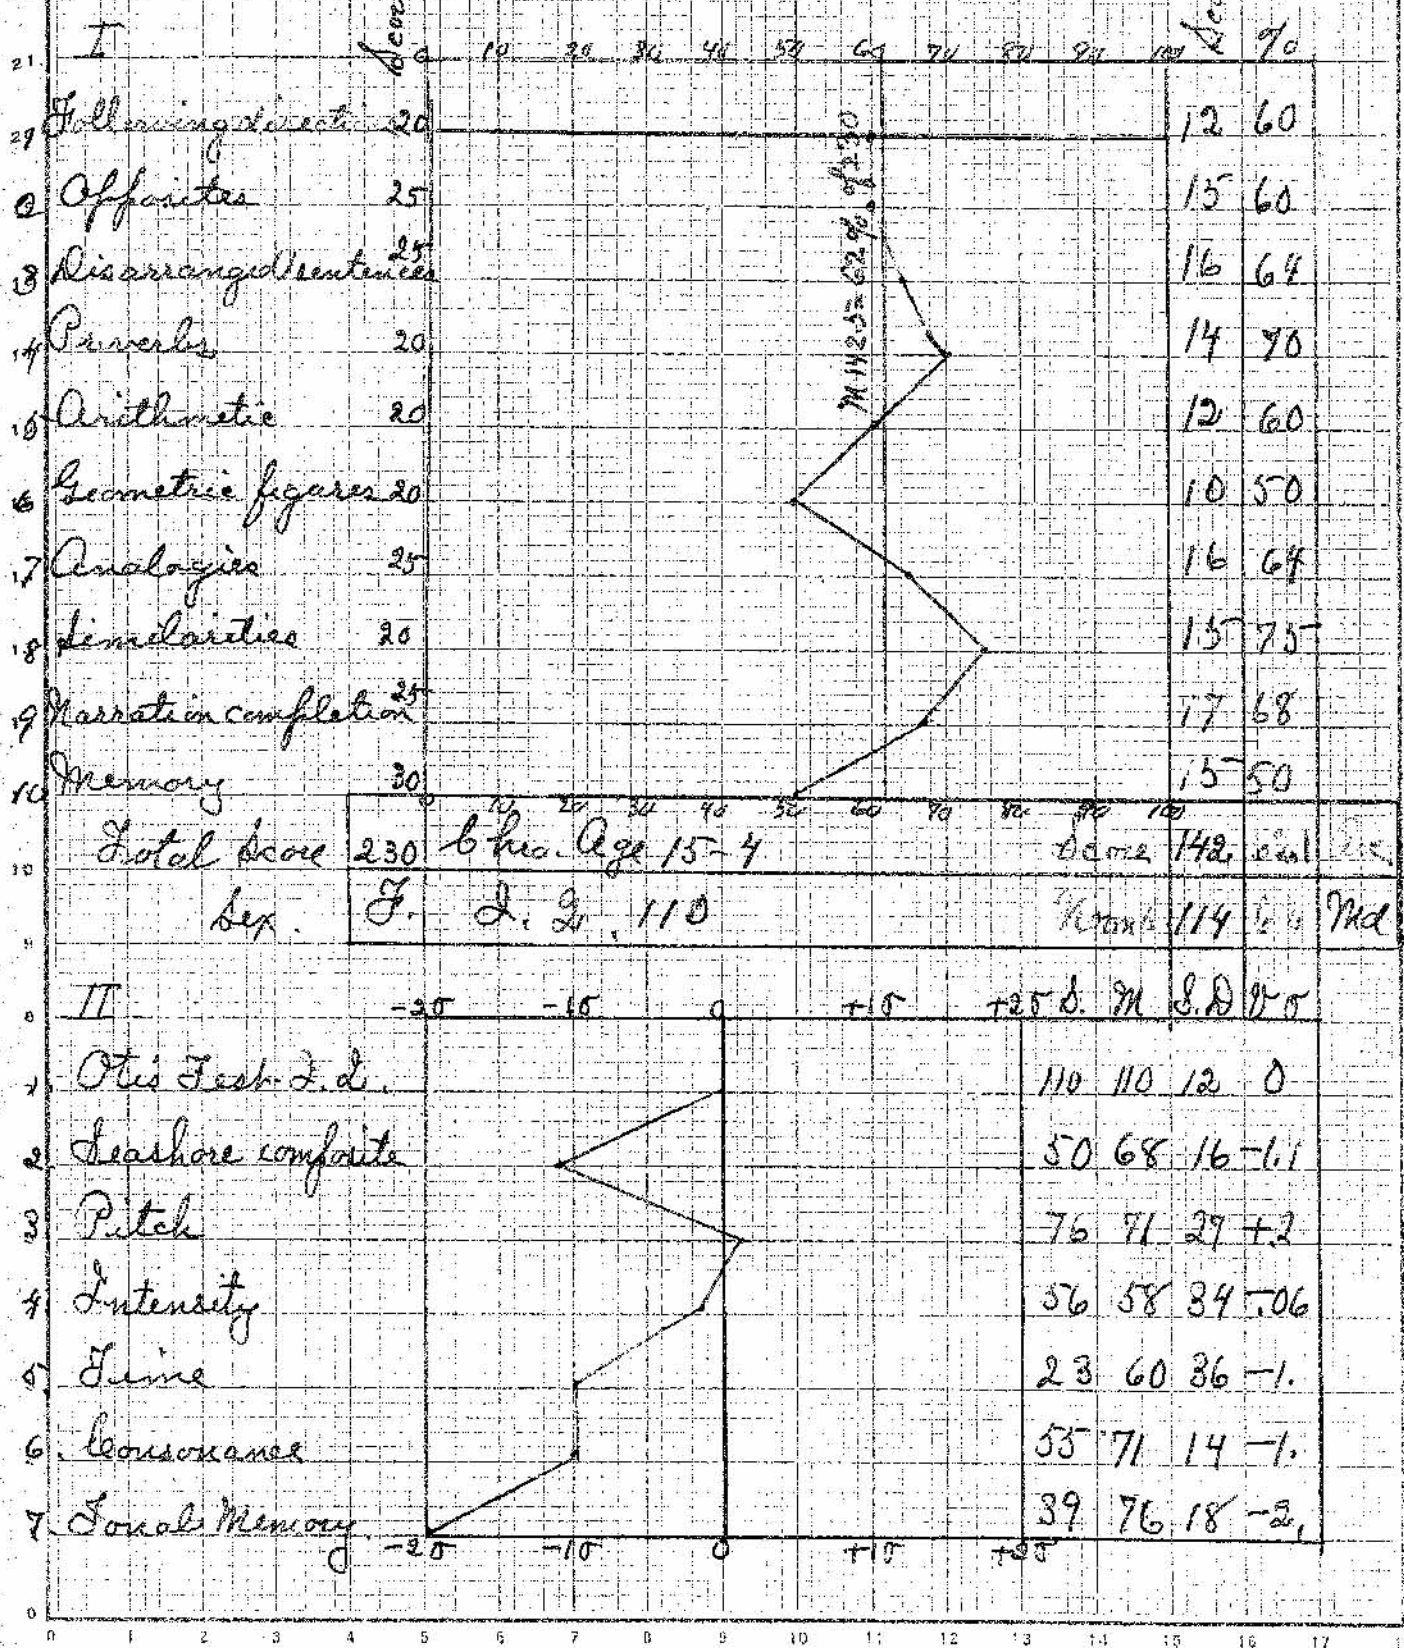 I Score 0 10 20 30 40 50 60 70 80 90 100 %
Following directi 20 12 60
2 Opposites 25 15 60
3 Disarranged sentences 25 16 64
4 Proverbs 20 14 70
5 Arithmetic 20 12 60
6 Geometric figures 20 10 50
7 Analogies 25 16 64
8 Similarities 20 15 75
9 Narration completion 25 17 68
10 Memory 30 15 50
M 142.5 = 62% of 230
0 10 20 30 40 50 60 70 80 90 100
Total Score 230 Chro. Age 15-4 Score 142
Sex. F. I. Q. 110 114 Md
II -2σ -1σ 0 +1σ +2σ S. M S.D V σ
1. Otis Test I.Q. 110 110 12 0
2 Seashore composite 50 68 16 -1.1
3 Pitch 76 71 27 +.2
4 Intensity 56 58 34 -.06
5. Time 23 60 36 -1.
6. Consonance 55 71 14 -1.
7. Tonal Memory. 39 76 18 -2.
-2σ -1σ 0 +1σ +2σ
0 1 2 3 4 5 6 7 8 9 10 11 12 13 14 15 16 17